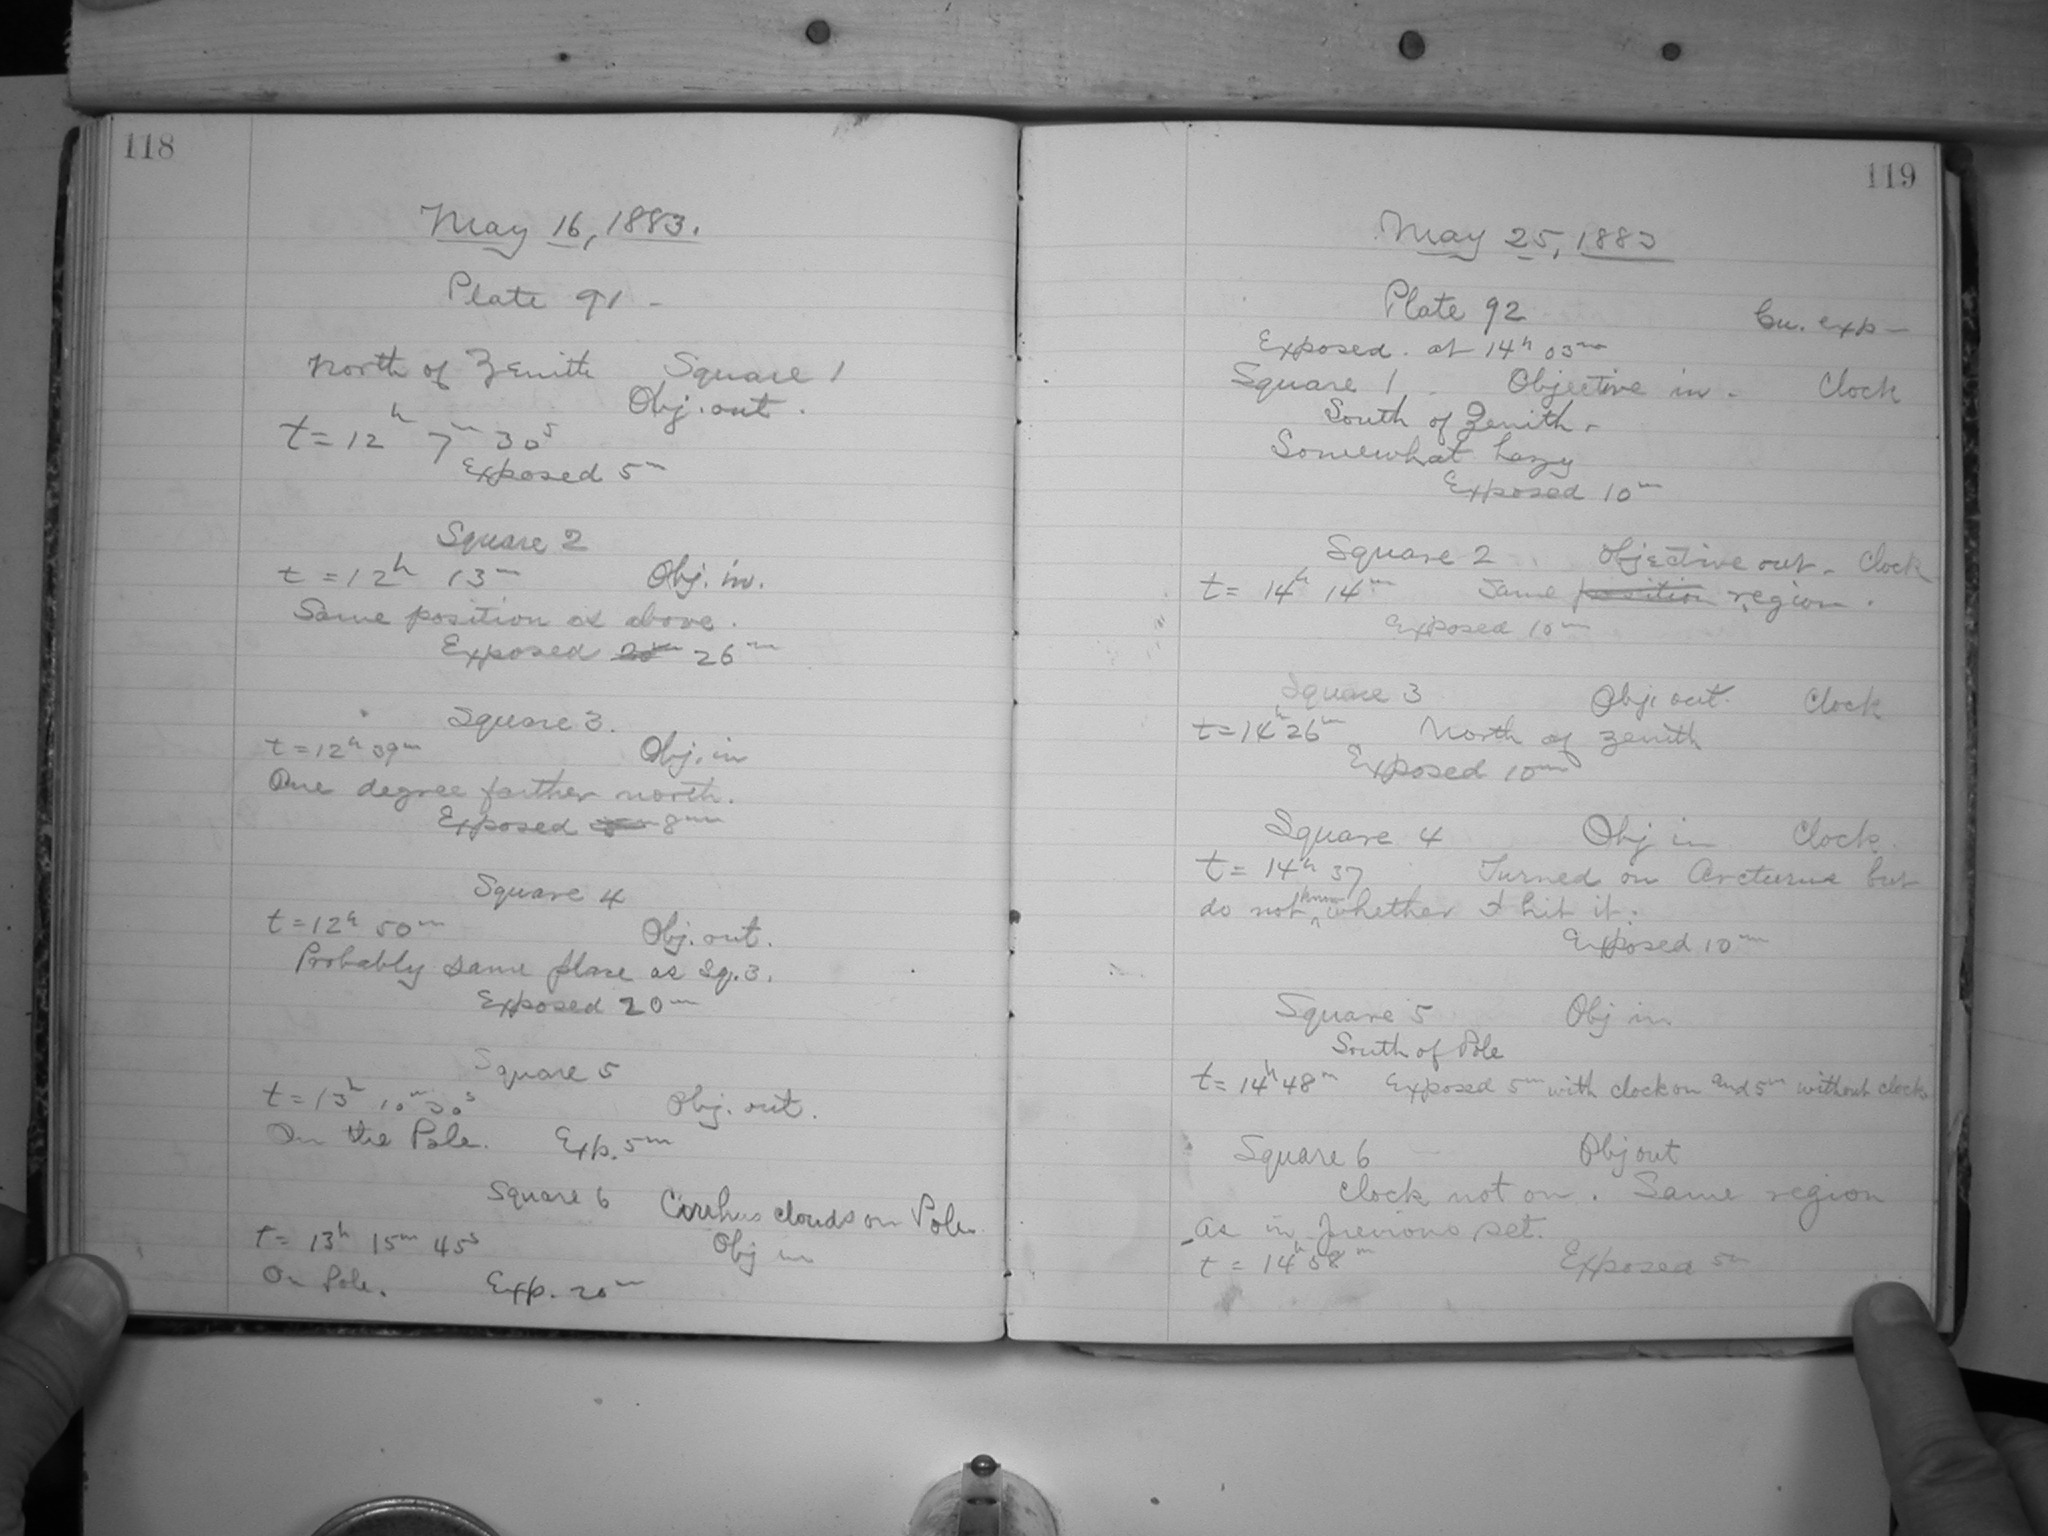 118
May 16, 1883.
Plate 91 -
North of Zenith Square 1
Obj. out.
t = 12h 7m 30s
Exposed 5m
Square 2
t = 12h 13m Obj. in.
Same position as above.
Exposed 26m
Square 3.
t = 12h 39m Obj. in
One degree farther north.
Exposed 8m
Square 4
t = 12h 50m Obj. out.
Probably same place as Sq. 3.
Exposed 20m
Square 5
t = 13h 10m 30s Obj. out.
On the Pole. Exp. 5m
Square 6 Cirrhus clouds on Pole
t = 13h 15m 45s Obj in
On Pole. Exp. 20m
119
May 25, 1883
Plate 92 exp-
Exposed. at 14h 03m
Square 1. Objective in. Clock
South of Zenith.
Somewhat hazy
Exposed 10m
Square 2. Objective out. Clock
t = 14h 14m Same position region.
Exposed 10m
Square 3 Obj. out. Clock
t = 14h 26m North of zenith
Exposed 10m
Square 4 Obj in Clock.
t = 14h 37 Turned on Arcturus but
do not know whether I hit it.
Exposed 10m
Square 5 Obj in
South of Pole
t = 14h 48m Exposed 5m with clock on and 5m without clock
Square 6 Obj out
Clock not on. Same region
as in previous set.
t = 14h 58m Exposed 5m